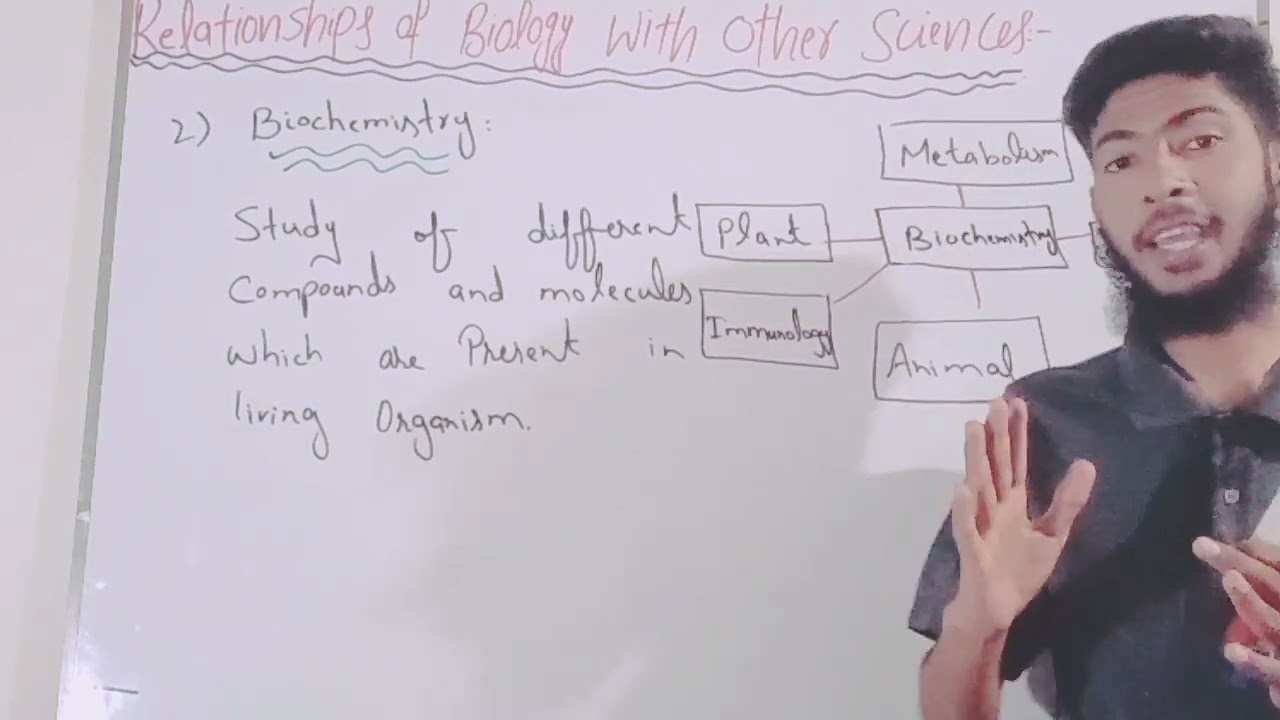 Relationships of Biology With Other Sciences:-
2) Biochemistry:
Study of different
Compounds and molecules
which are Present in
living Organism.
Metabolism
Plant
Biochemistry
Immunology
Animal